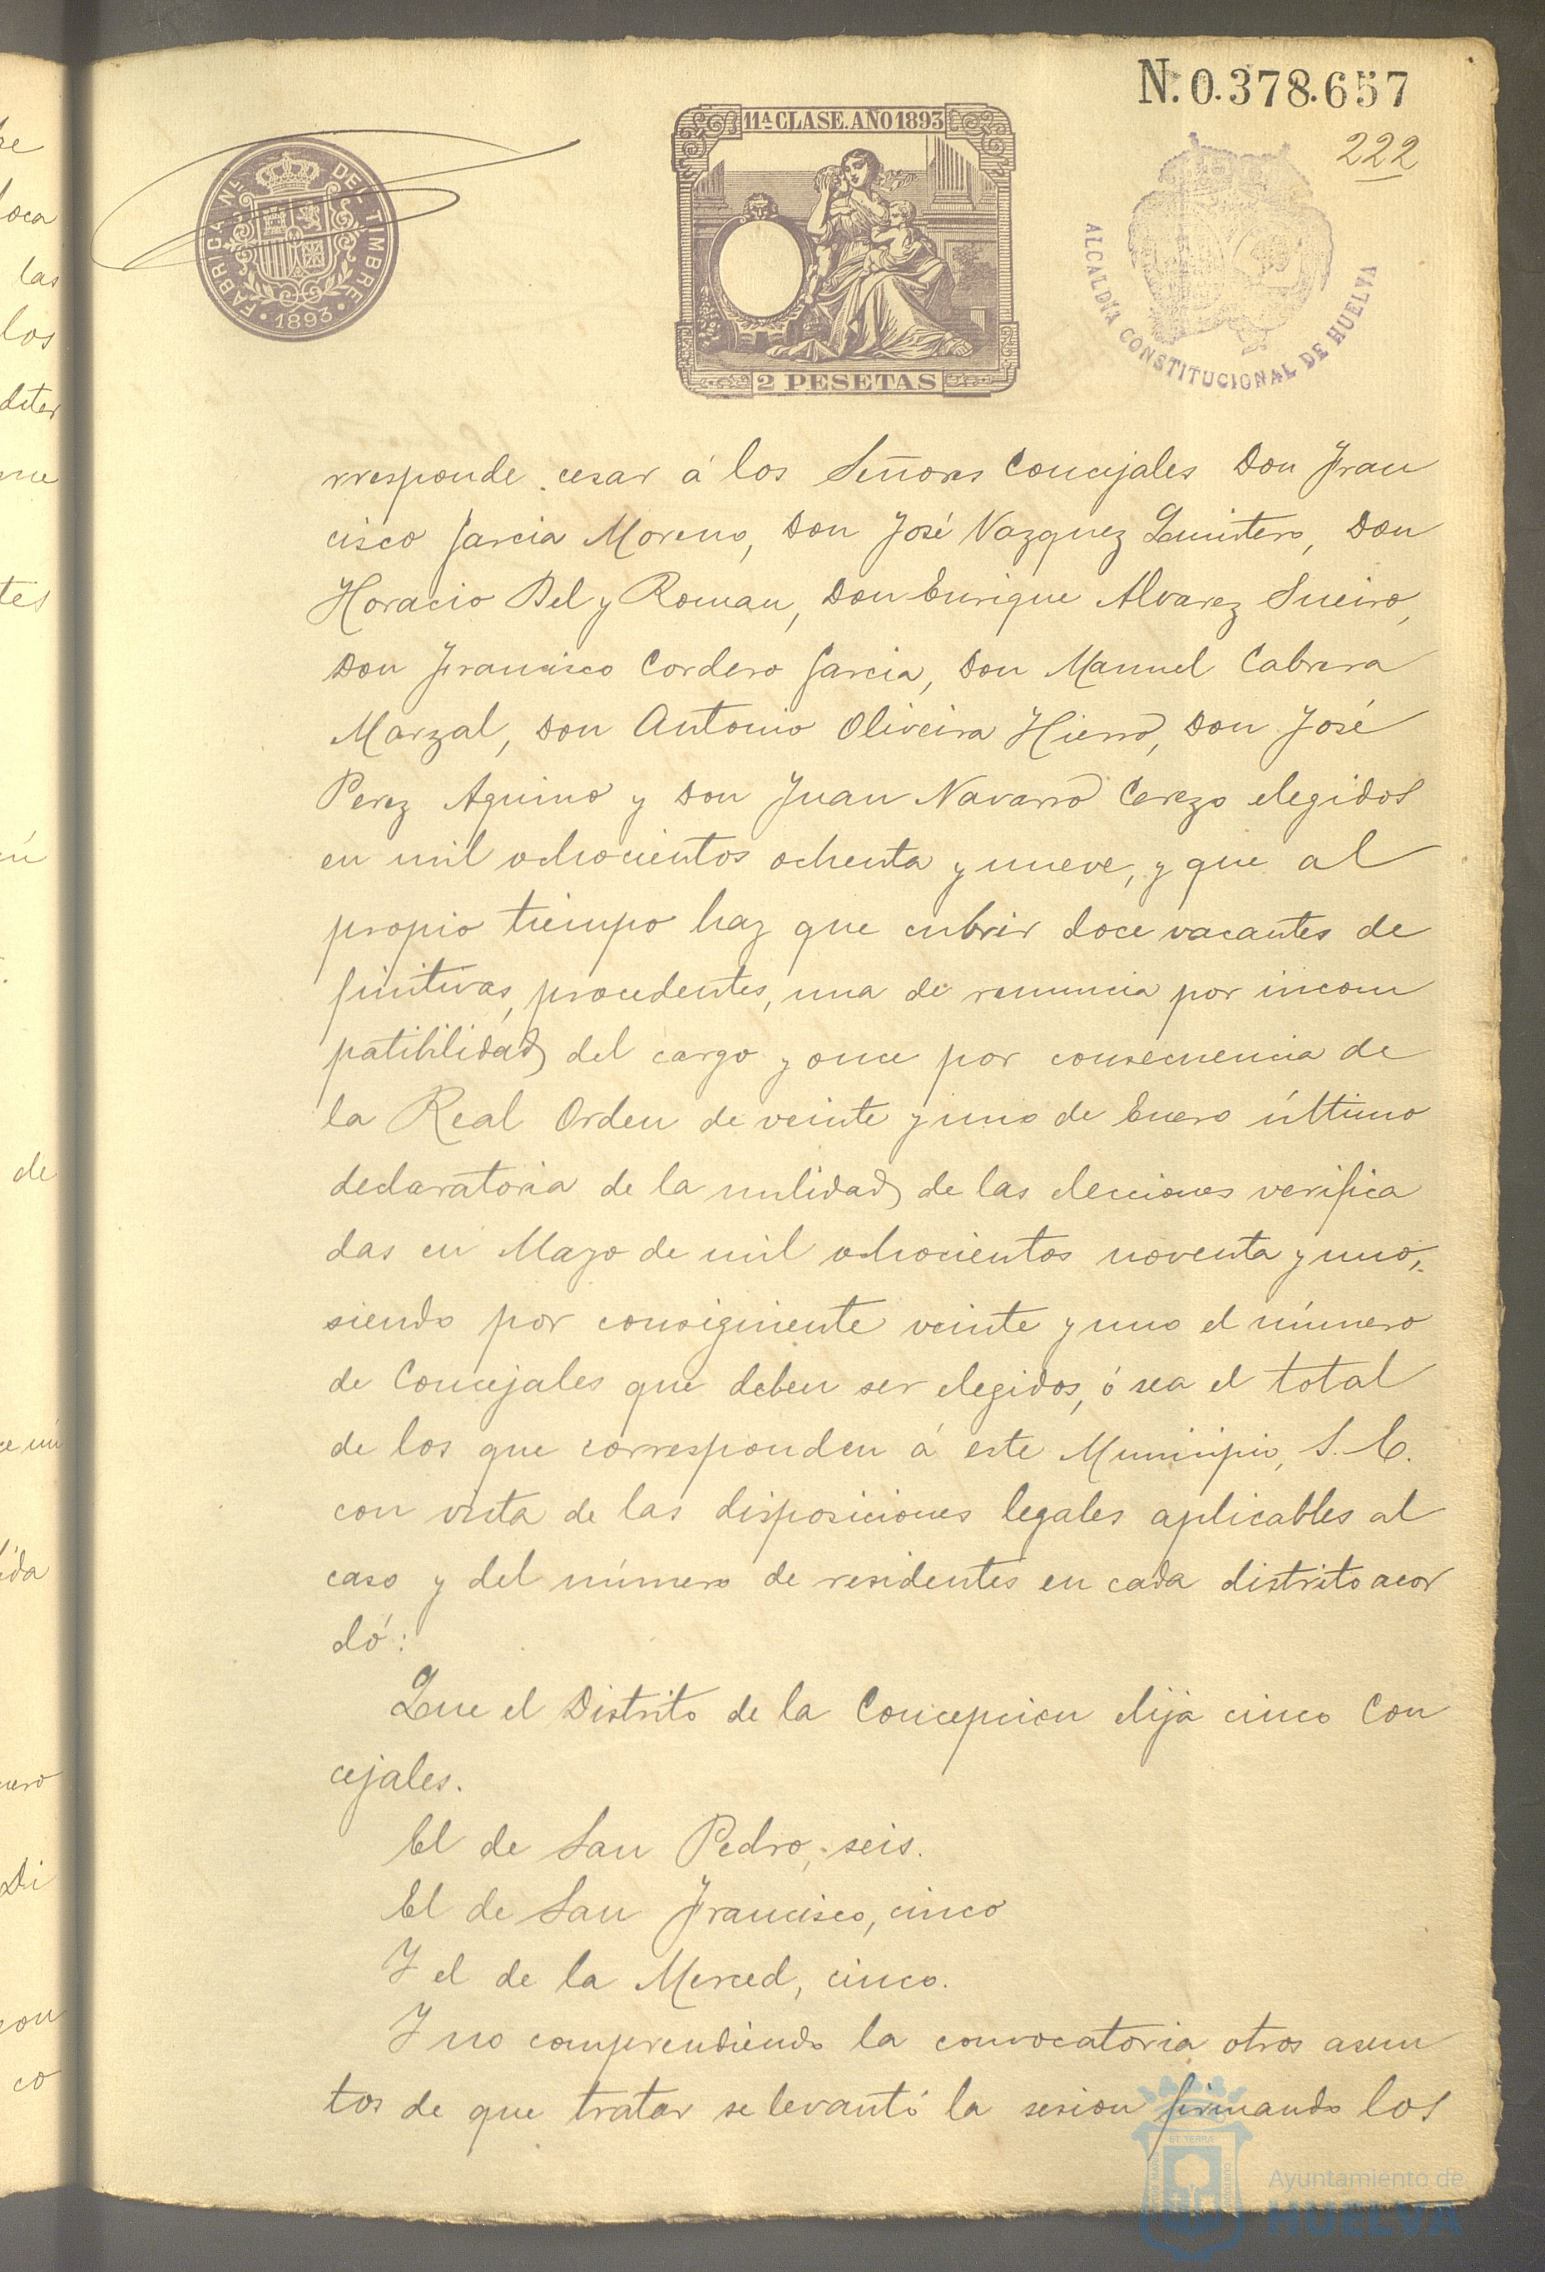 N. 0.378.657
222
11ª CLASE. AÑO 1893
2 PESETAS
FABRICA NAL DEL TIMBRE
1893
ALCALDÍA CONSTITUCIONAL DE HUELVA
rresponde cesar á los Señores Concejales Don Fran
cisco Garcia Moreno, Don José Vazquez Quintero, Don
Horacio Bel y Roman, Don Enrique Alvarez Sueiro,
Don Francisco Cordero Garcia, Don Manuel Cabrera
Marzal, Don Antonio Oliveira Hierro, Don José
Perez Aquino y Don Juan Navarro Cerezo elegidos
en mil ochocientos ochenta y nueve, y que al
propio tiempo hay que cubrir doce vacantes de
finitivas, procedentes, una de renuncia por incom
patibilidad del cargo y once por consecuencia de
la Real Orden de veinte y uno de Enero último
declaratoria de la nulidad de las elecciones verifica
das en Mayo de mil ochocientos noventa y uno,
siendo por consiguiente veinte y uno el número
de Concejales que deben ser elegidos, ó sea el total
de los que corresponden á este Municipio, S. E.
con vista de las disposiciones legales aplicables al
caso y del número de residentes en cada distrito acor
dó:
Que el Distrito de la Concepcion elija cinco Con
cejales.
El de San Pedro, seis.
El de San Francisco, cinco
Y el de la Merced, cinco.
Y no comprendiendo la convocatoria otros asun
tos de que tratar se levantó la sesion firmando los
Ayuntamiento de
HUELVA